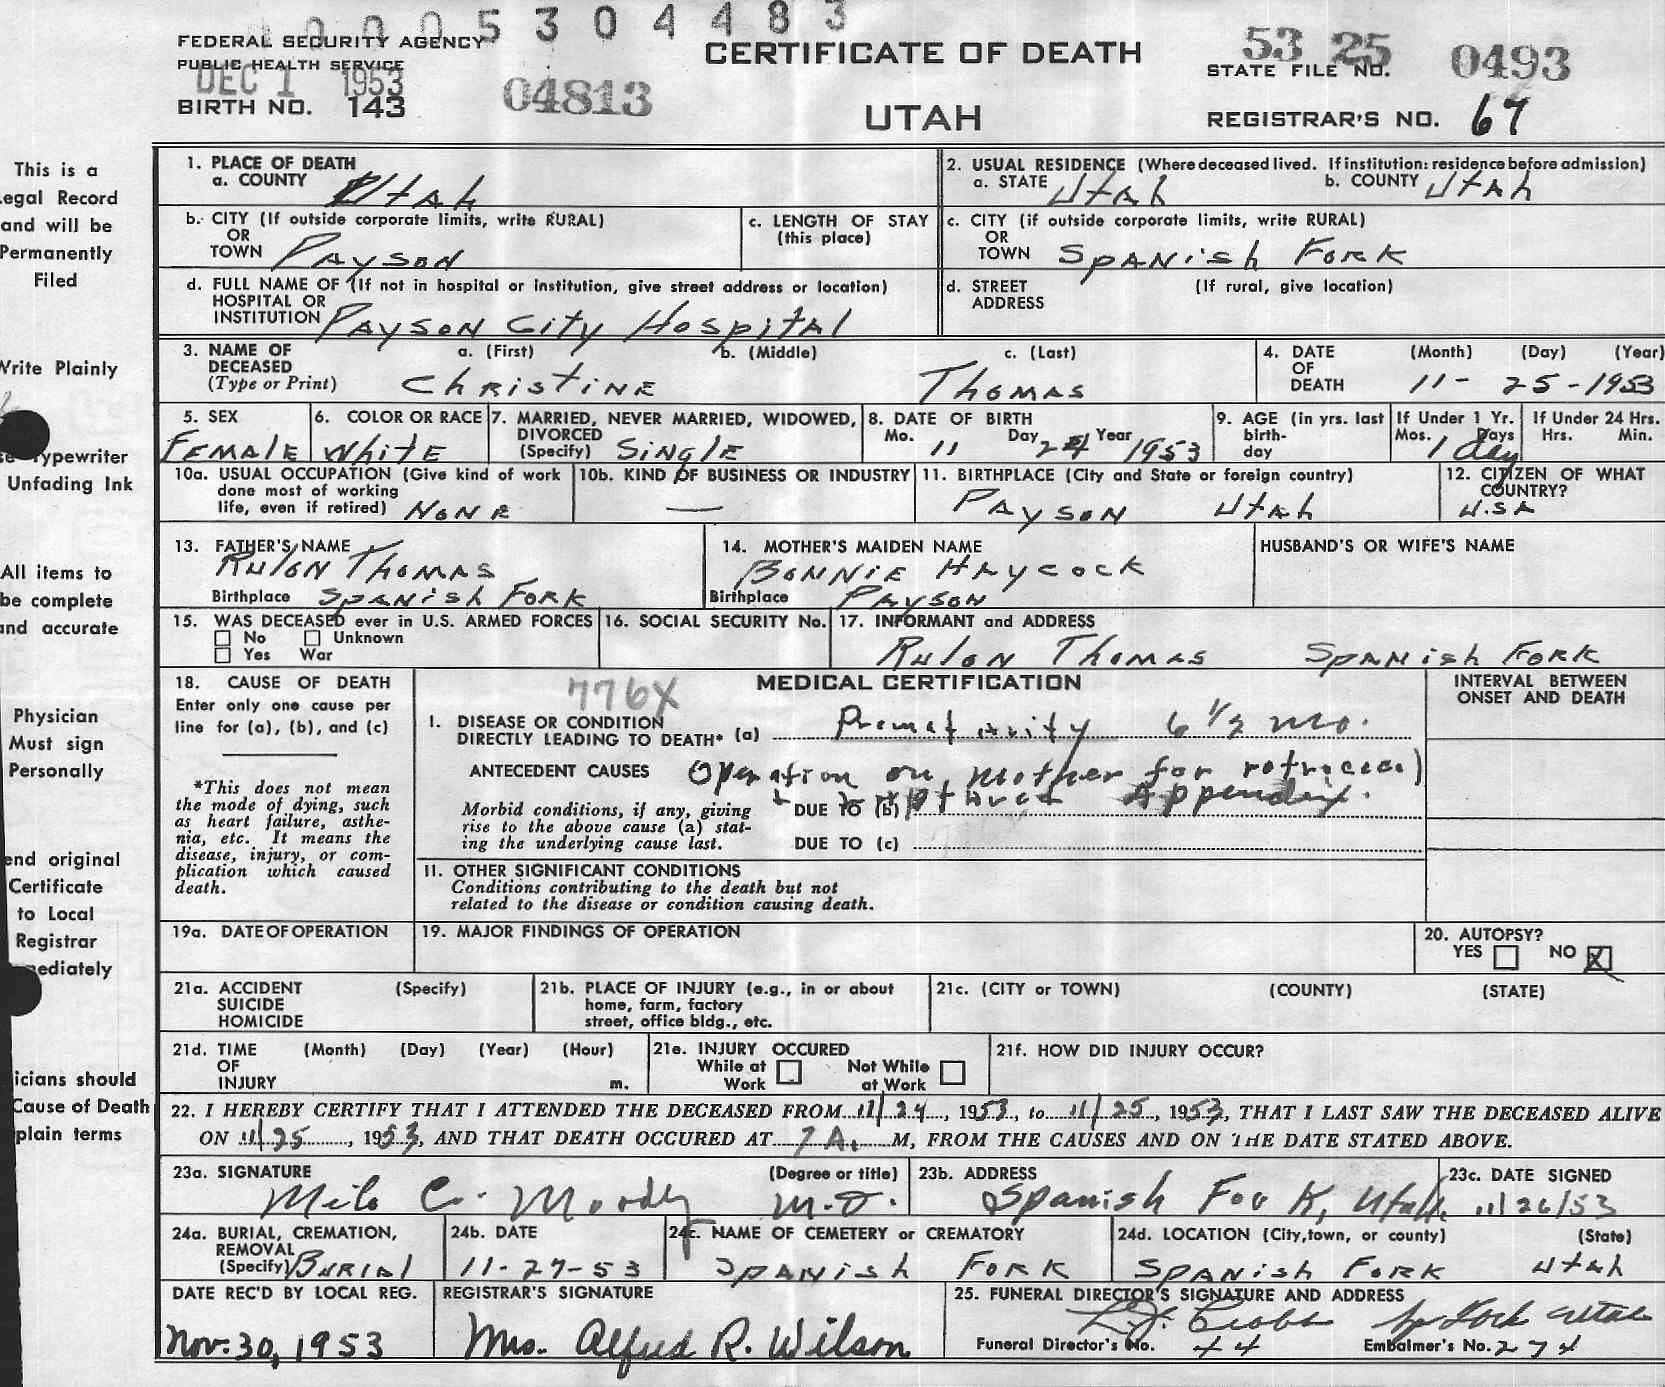 0 0 0 5 3 0 4 4 8 3
FEDERAL SECURITY AGENCY
PUBLIC HEALTH SERVICE
DEC 1 1953
BIRTH NO. 143
04813
CERTIFICATE OF DEATH
UTAH
53 25 0493
STATE FILE NO.
REGISTRAR'S NO. 67
This is a
egal Record
and will be
Permanently
Filed
Write Plainly
Typewriter
Unfading Ink
All items to
be complete
and accurate
Physician
Must sign
Personally
end original
Certificate
to Local
Registrar
mediately
icians should
Cause of Death
plain terms
1. PLACE OF DEATH
a. COUNTY Utah
2. USUAL RESIDENCE (Where deceased lived. If institution: residence before admission)
a. STATE Utah b. COUNTY Utah
b. CITY (If outside corporate limits, write RURAL)
OR
TOWN Payson
c. LENGTH OF STAY
(this place)
c. CITY (if outside corporate limits, write RURAL)
OR
TOWN Spanish Fork
d. FULL NAME OF (If not in hospital or institution, give street address or location)
HOSPITAL OR
INSTITUTION Payson City Hospital
d. STREET (If rural, give location)
ADDRESS
3. NAME OF DECEASED (Type or Print)
a. (First) b. (Middle) c. (Last)
Christine Thomas
4. DATE OF DEATH (Month) (Day) (Year)
11- 25-1953
5. SEX
Female
6. COLOR OR RACE
White
7. MARRIED, NEVER MARRIED, WIDOWED,
DIVORCED
(Specify) Single
8. DATE OF BIRTH
Mo. 11 Day 24 Year 1953
9. AGE (in yrs. last
birth-
day
If Under 1 Yr.
Mos. Days
1 day
If Under 24 Hrs.
Hrs. Min.
10a. USUAL OCCUPATION (Give kind of work
done most of working
life, even if retired) None
10b. KIND OF BUSINESS OR INDUSTRY
—
11. BIRTHPLACE (City and State or foreign country)
Payson Utah
12. CITIZEN OF WHAT
COUNTRY?
U.S.A
13. FATHER'S NAME
Rulon Thomas
Birthplace Spanish Fork
14. MOTHER'S MAIDEN NAME
Bonnie Haycock
Birthplace Payson
HUSBAND'S OR WIFE'S NAME
15. WAS DECEASED ever in U.S. ARMED FORCES
No Unknown
Yes War
16. SOCIAL SECURITY No.
17. INFORMANT and ADDRESS
Rulon Thomas Spanish Fork
18. CAUSE OF DEATH
Enter only one cause per
line for (a), (b), and (c)
*This does not mean
the mode of dying, such
as heart failure, asthe-
nia, etc. It means the
disease, injury, or com-
plication which caused
death.
776X
MEDICAL CERTIFICATION
INTERVAL BETWEEN
ONSET AND DEATH
I. DISEASE OR CONDITION
DIRECTLY LEADING TO DEATH* (a) Prematurity 6 1/2 mo.
ANTECEDENT CAUSES Operation on mother for
Morbid conditions, if any, giving
rise to the above cause (a) stat-
ing the underlying cause last.
DUE TO (b) Appendix.
DUE TO (c)
11. OTHER SIGNIFICANT CONDITIONS
Conditions contributing to the death but not
related to the disease or condition causing death.
19a. DATE OF OPERATION
19. MAJOR FINDINGS OF OPERATION
20. AUTOPSY?
YES NO X
21a. ACCIDENT (Specify)
SUICIDE
HOMICIDE
21b. PLACE OF INJURY (e.g., in or about
home, farm, factory
street, office bldg., etc.
21c. (CITY or TOWN) (COUNTY) (STATE)
21d. TIME (Month) (Day) (Year) (Hour)
OF
INJURY m.
21e. INJURY OCCURED
While at Work Not While at Work
21f. HOW DID INJURY OCCUR?
22. I HEREBY CERTIFY THAT I ATTENDED THE DECEASED FROM 11/24, 1953, to 11/25, 1953, THAT I LAST SAW THE DECEASED ALIVE
ON 11/25, 1953, AND THAT DEATH OCCURED AT 7 A. M, FROM THE CAUSES AND ON THE DATE STATED ABOVE.
23a. SIGNATURE (Degree or title)
Milo C. Moody M.D.
23b. ADDRESS
Spanish Fork, Utah.
23c. DATE SIGNED
11/26/53
24a. BURIAL, CREMATION,
REMOVAL
(Specify) Burial
24b. DATE
11-27-53
24c. NAME OF CEMETERY or CREMATORY
Spanish Fork
24d. LOCATION (City, town, or county) (State)
Spanish Fork Utah
DATE REC'D BY LOCAL REG.
Nov. 30, 1953
REGISTRAR'S SIGNATURE
Mrs. Alfred R. Wilson
25. FUNERAL DIRECTOR'S SIGNATURE AND ADDRESS
Sp Fork Utah
Funeral Director's No. 44 Embalmer's No. 274